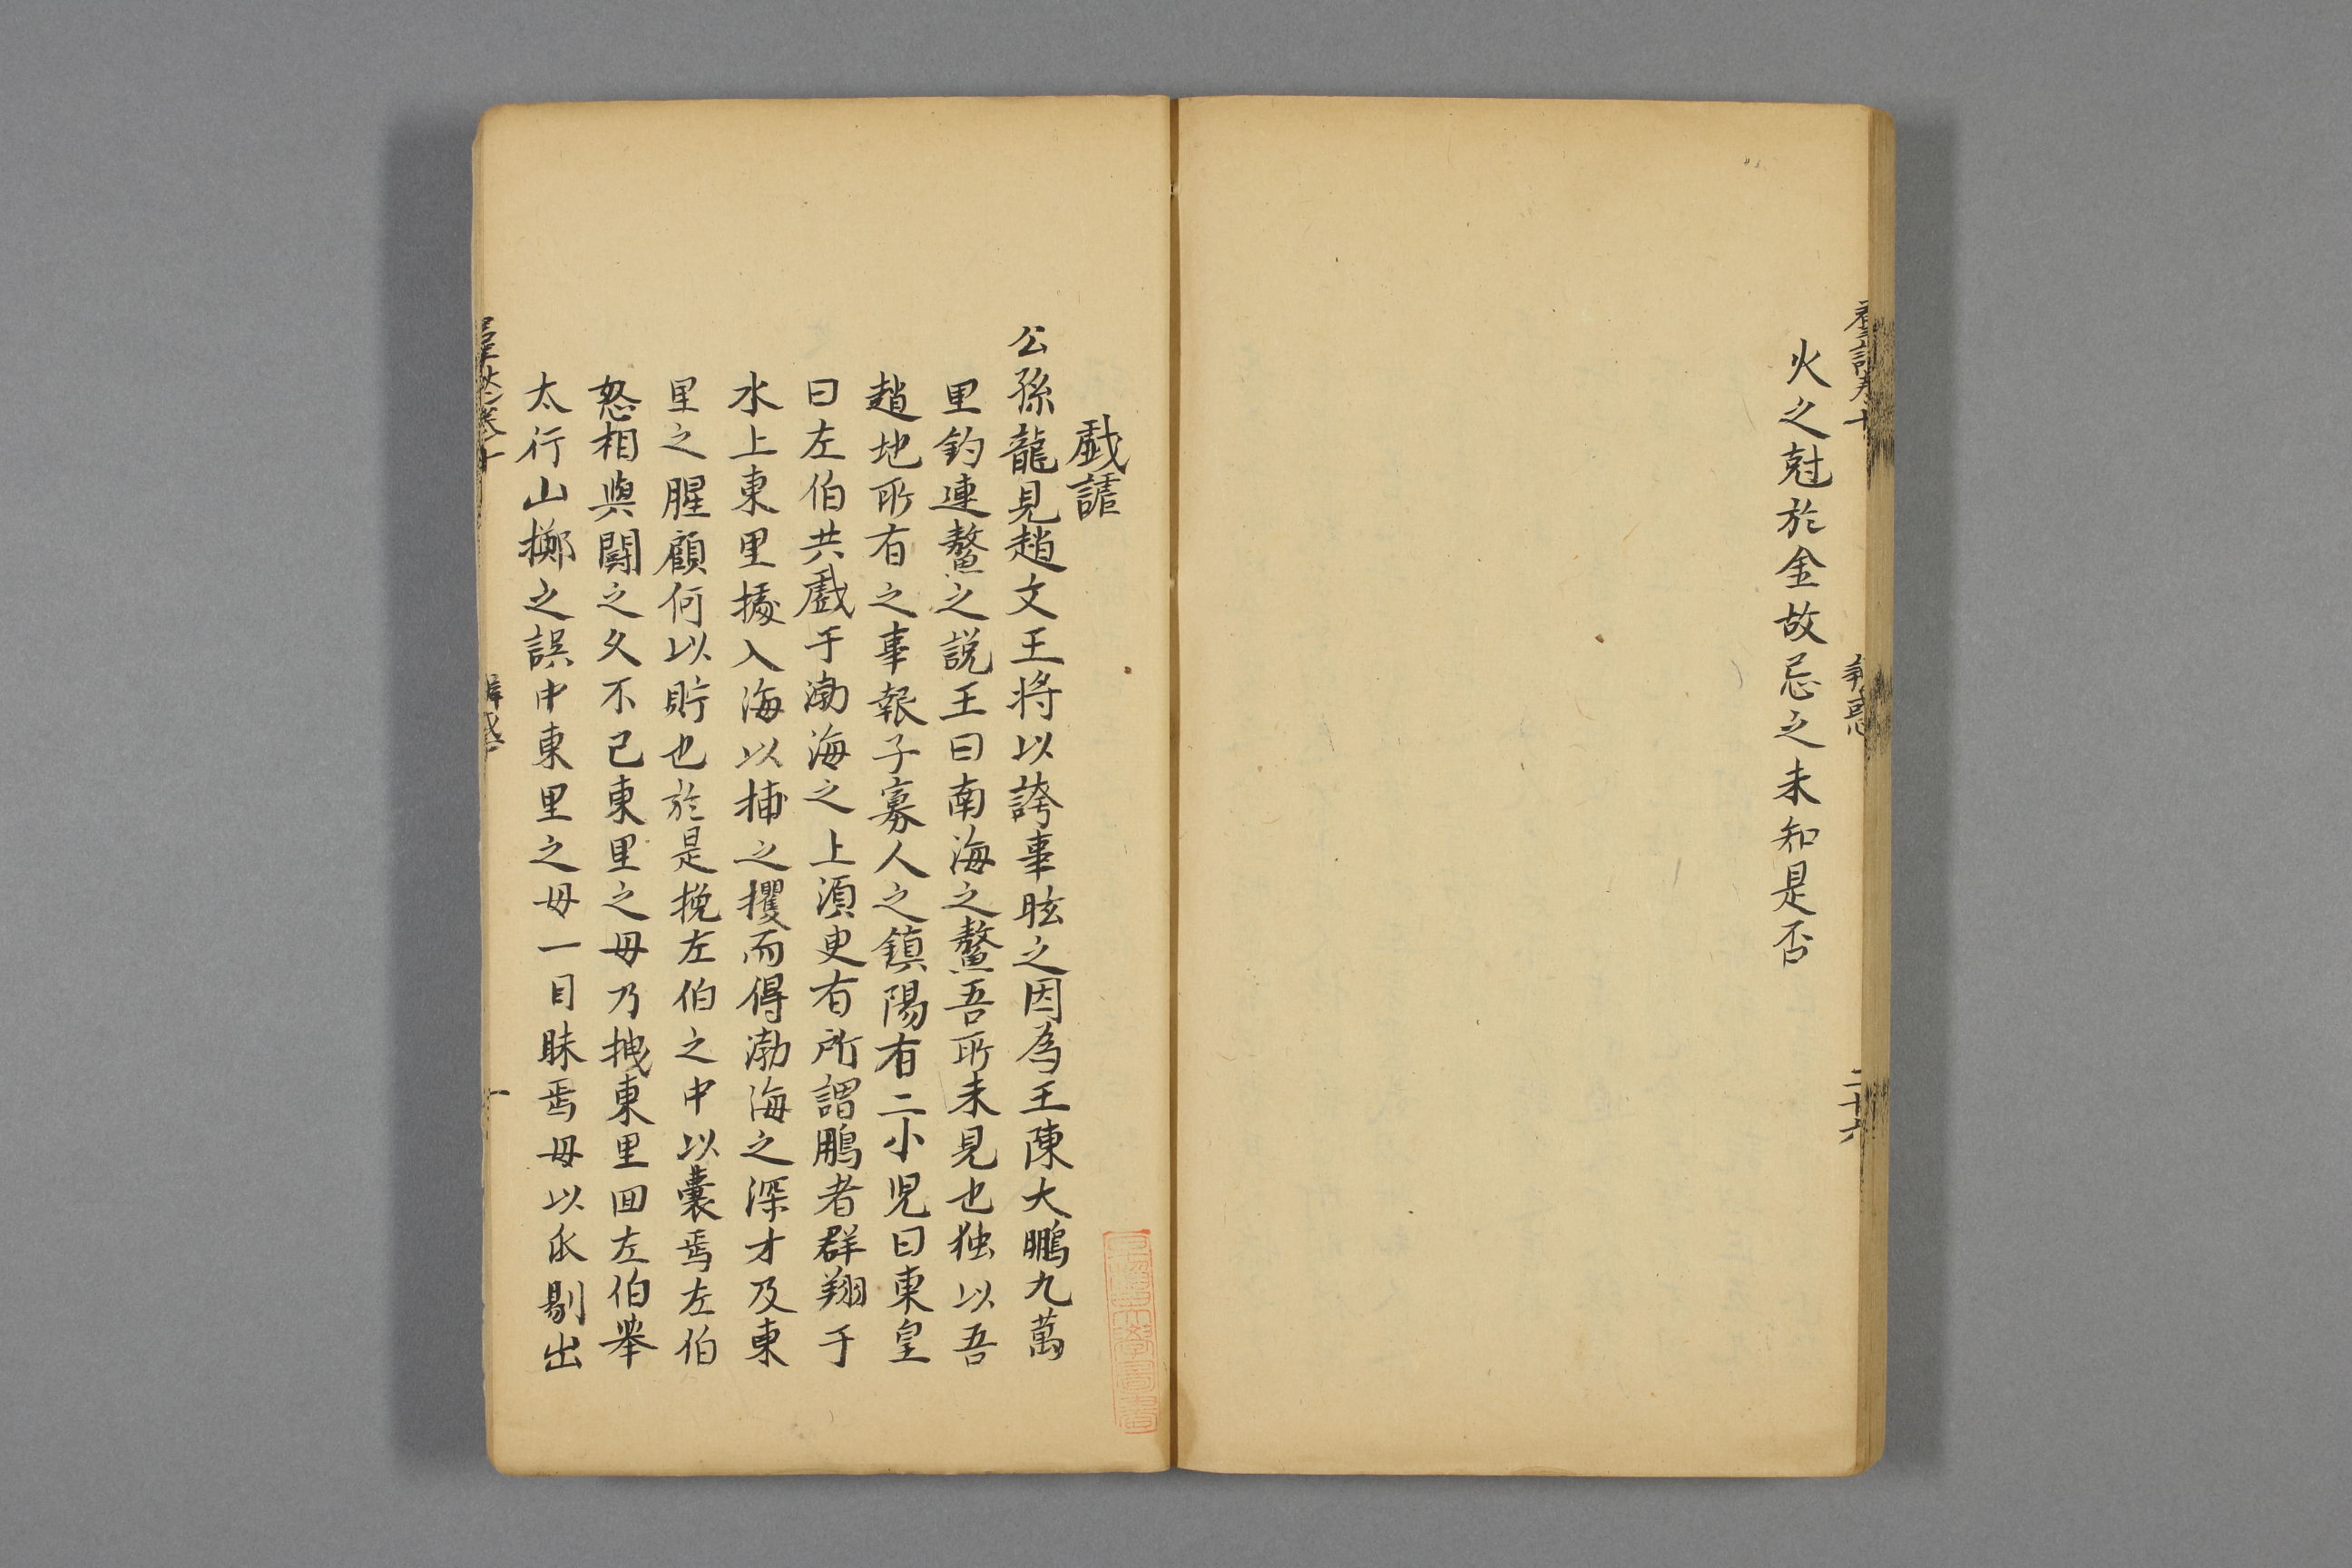 火之尅於金故忌之未知是否
二十六
戯謔
公孫龍見趙文王将以誇事眩之因為王陳大鵬九萬
里釣連鰲之説王曰南海之鰲吾所未見也独以吾
趙地所有之事報子寡人之鎮陽有二小児曰東皇
曰左伯共戲于渤海之上湏臾有所謂鵬者群翔于
水上東里據入海以捕之攫而得渤海之深才及東
里之腥顧何以貯也於是挽左伯之中以囊焉左伯
怒相與鬪之久不已東里之母乃拽東里囬左伯舉
太行山擲之誤中東里之母一目眛焉母以爪剔出